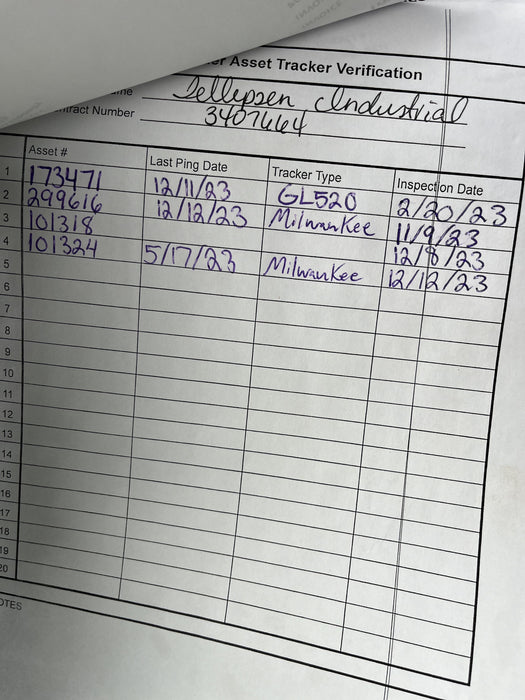 er Asset Tracker Verification
me Tellepsen Industrial
tract Number 3407664
Asset # Last Ping Date Tracker Type Inspection Date
1 173471 12/11/23 GL520 2/20/23
2 299616 12/12/23 Milwaukee 11/9/23
3 101318 12/8/23
4 101324 5/17/23 Milwaukee 12/12/23
5
6
7
8
9
10
11
12
13
14
15
16
17
18
19
20
OTES